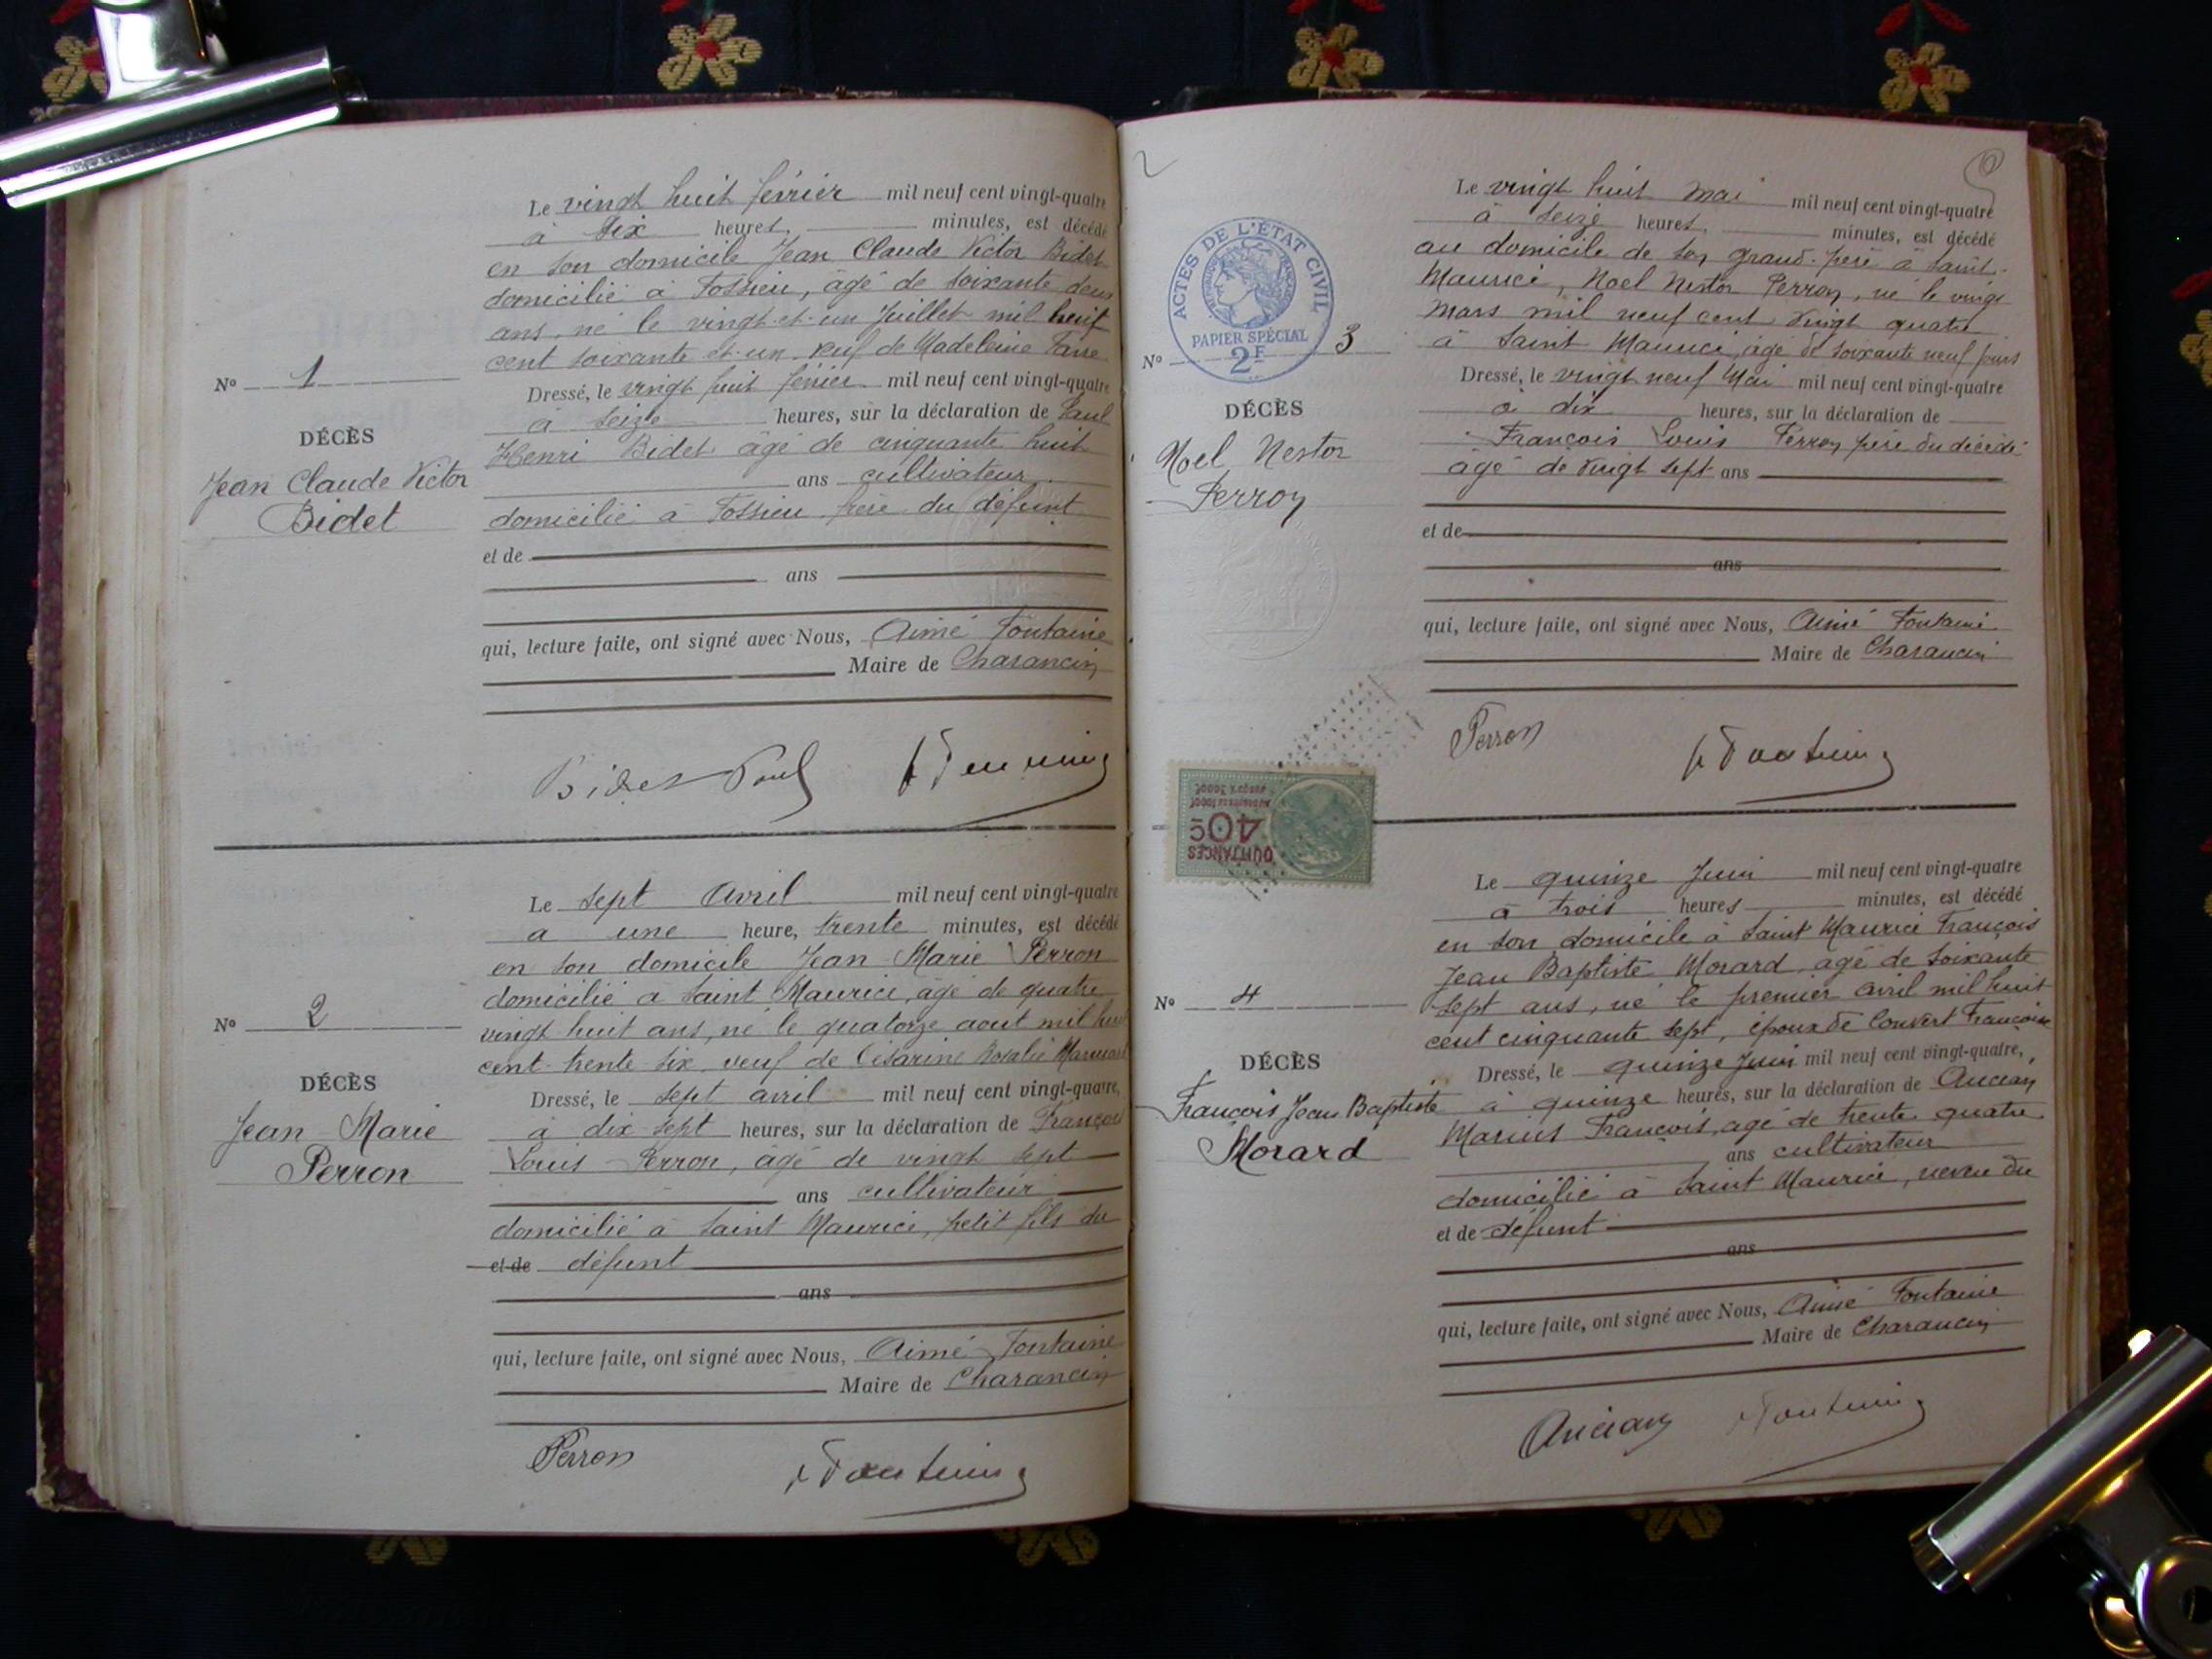 Le vingt huit février mil neuf cent vingt-quatre
à dix heures, minutes, est décédé
en son domicile Jean Claude Victor Bidet
domicilié à Fossieu, âgé de soixante deux
ans, né le vingt-et-un Juillet mil huit
cent soixante et un, veuf de Madeleine
Nº 1
DÉCÈS
Jean Claude Victor
Bidet
Dressé, le vingt huit février mil neuf cent vingt-quatre
à seize heures, sur la déclaration de Paul
Henri Bidet âgé de cinquante huit
ans cultivateur
domicilié à Fossieu frère du défunt
et de
ans
qui, lecture faite, ont signé avec Nous, Aimé Fontaine
Maire de Charancin
Bidet Paul
Le sept Avril mil neuf cent vingt-quatre
à une heure, trente minutes, est décédé
en son domicile Jean Marie Perron
domicilié à Saint Maurice, âgé de quatre
vingt huit ans, né le quatorze aout mil huit
cent trente six, veuf de Césarine Rosalie
Nº 2
DÉCÈS
Jean Marie
Perron
Dressé, le sept avril mil neuf cent vingt-quatre,
à dix sept heures, sur la déclaration de François
Louis Perron, âgé de vingt sept
ans cultivateur
domicilié à Saint Maurice, petit fils du
et de défunt
ans
qui, lecture faite, ont signé avec Nous, Aimé Fontaine
Maire de Charancin
Perron Fontaine
ACTES DE L'ÉTAT CIVIL
PAPIER SPÉCIAL
2F
Le vingt huit Mai mil neuf cent vingt-quatre
à seize heures, minutes, est décédé
au domicile de son grand-père à Saint-
Maurice, Noel Nestor Perron, né le vingt
Mars mil neuf cent vingt quatre
à Saint Maurice, âgé de soixante neuf jours
Nº 3
DÉCÈS
Noel Nestor
Perron
Dressé, le vingt neuf Mai mil neuf cent vingt-quatre
à dix heures, sur la déclaration de
François Louis Perron père du décédé
âgé de vingt sept ans
et de
ans
qui, lecture faite, ont signé avec Nous, Aimé Fontaine
Maire de Charancin
Perron Fontaine
QUITTANCES
40c
Le quinze Juin mil neuf cent vingt-quatre
à trois heures minutes, est décédé
en son domicile à Saint Maurice François
Jean Baptiste Morard, âgé de soixante
sept ans, né le premier avril mil huit
cent cinquante sept, époux de Convert Françoise
Nº 4
DÉCÈS
François Jean Baptiste
Morard
Dressé, le quinze Juin mil neuf cent vingt-quatre,
à quinze heures, sur la déclaration de Ancian
Marius François, âgé de trente quatre
ans cultivateur
domicilié à Saint Maurice, neveu du
et de défunt
ans
qui, lecture faite, ont signé avec Nous, Aimé Fontaine
Maire de Charancin
Ancian Fontaine